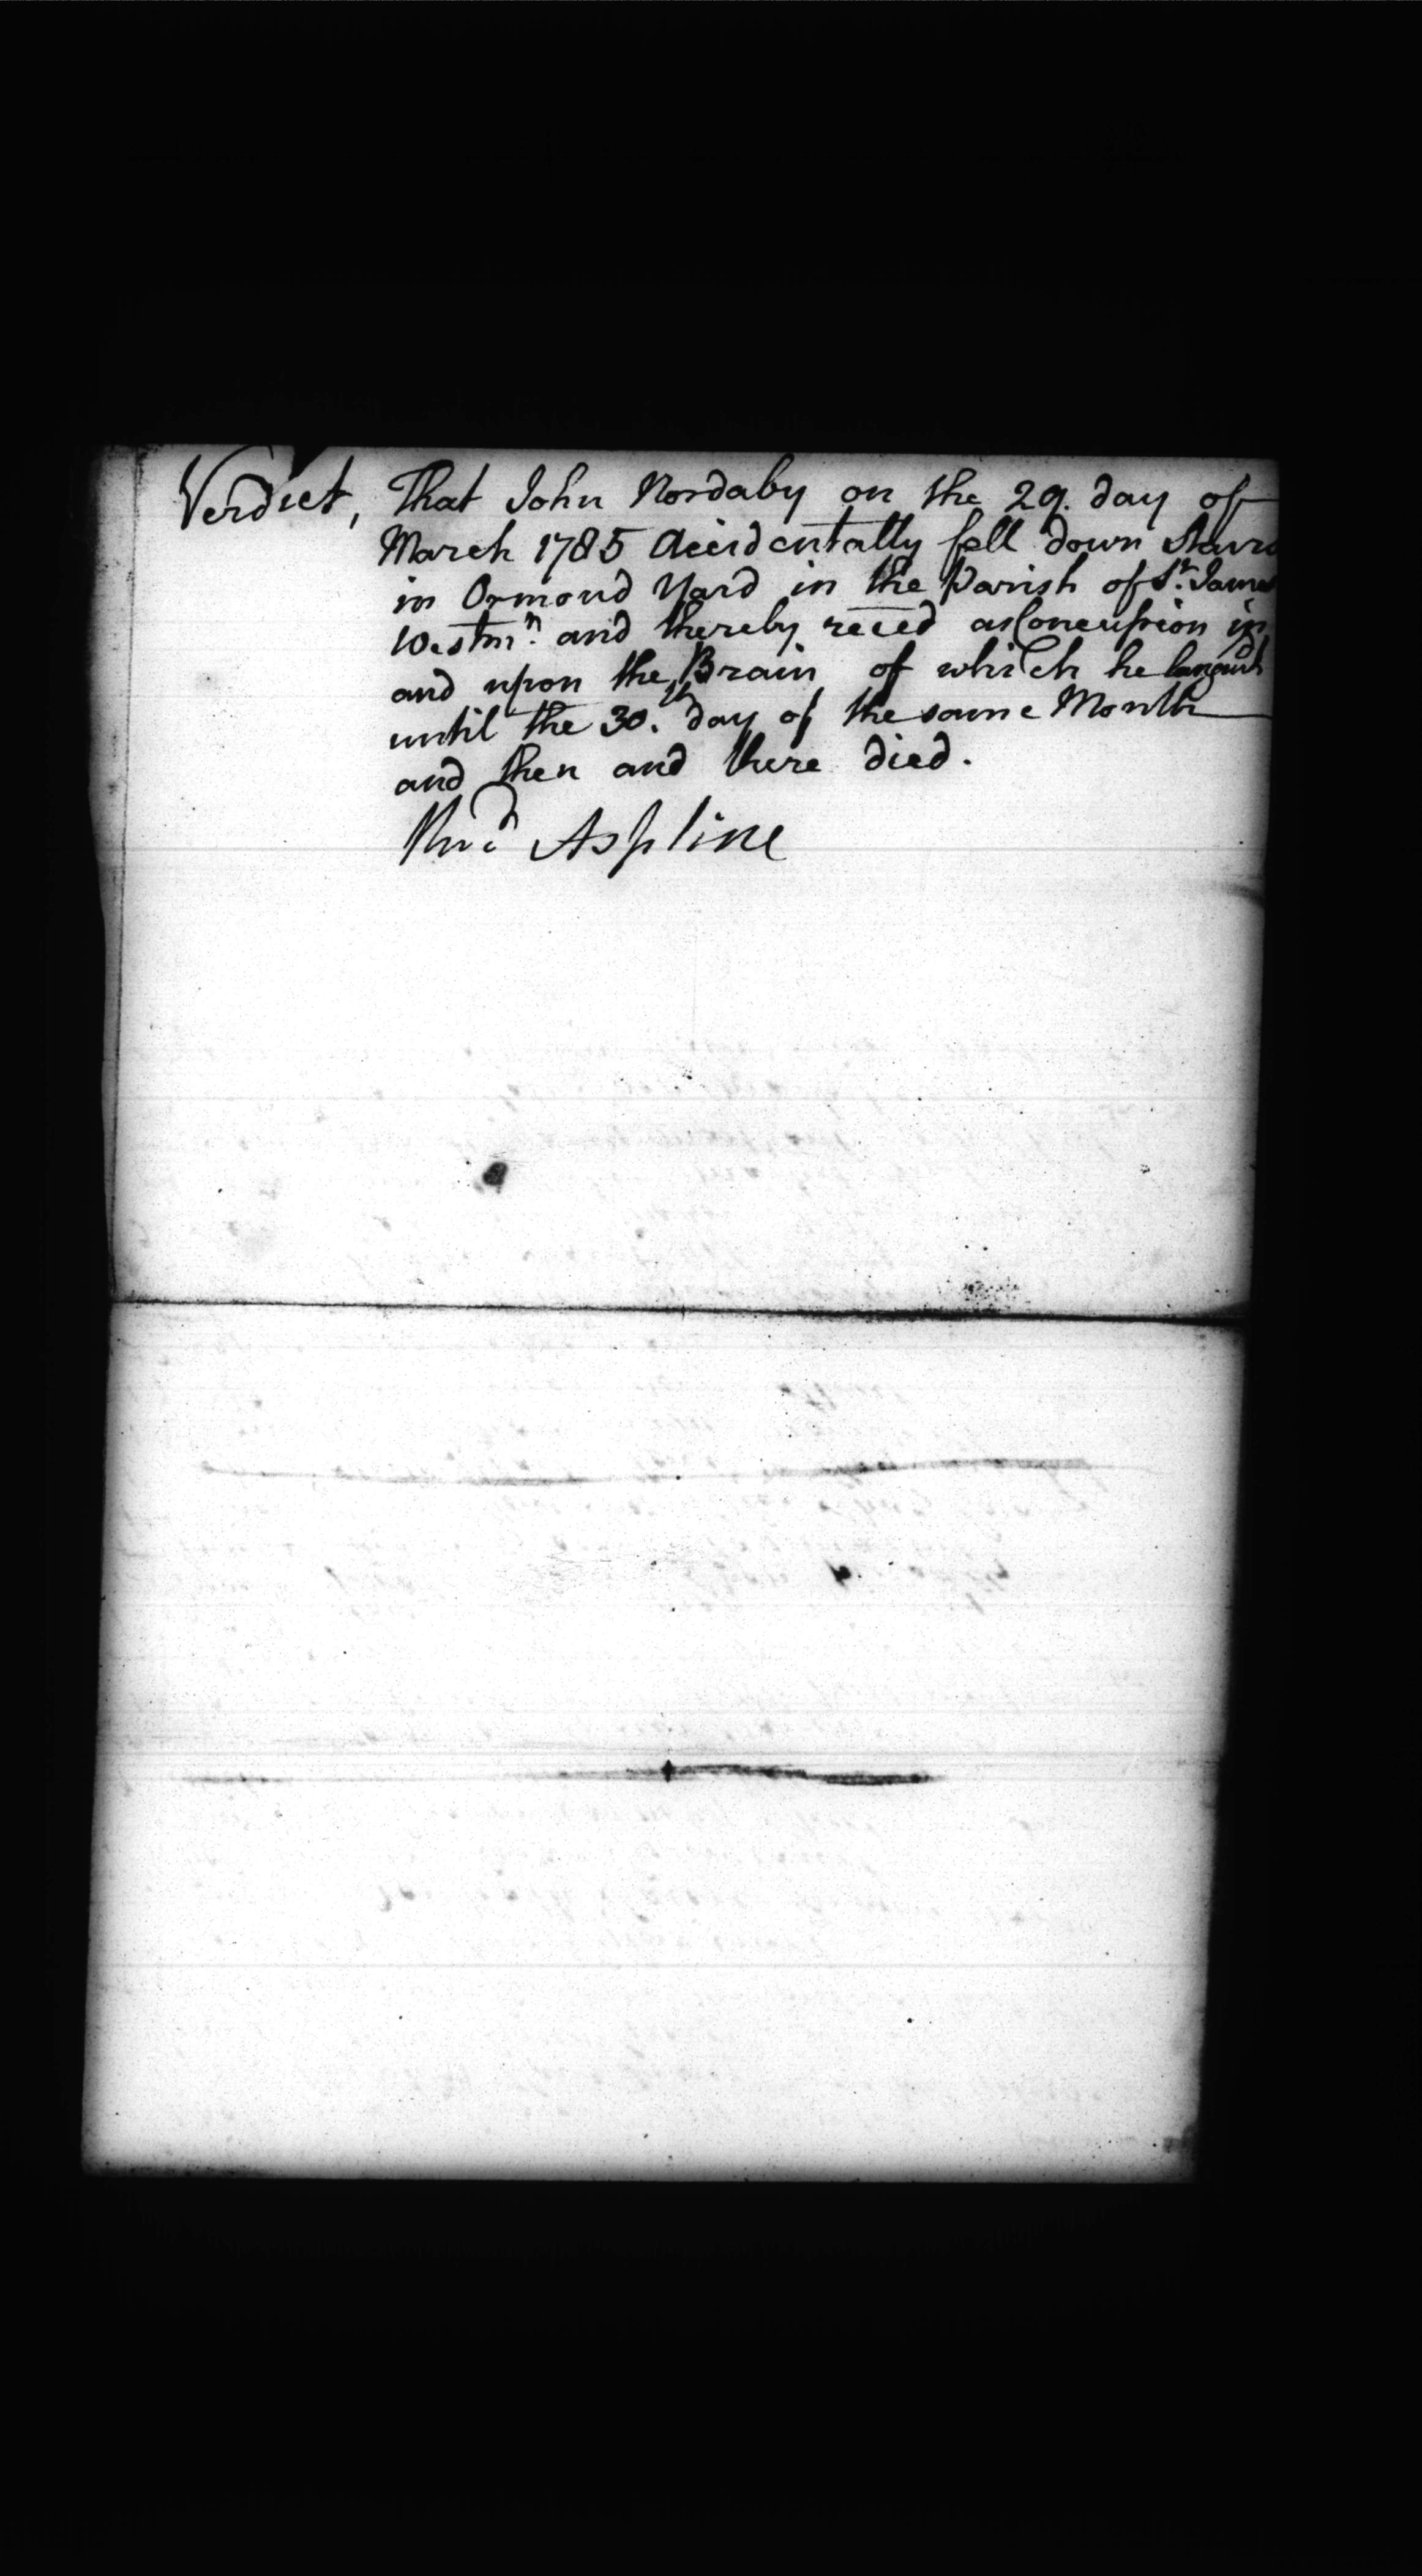 Verdict, That John Nordaby on the 29. day of
March 1785 Accidentally fell down Stairs
in Ormond Yard in the Parish of St. James
Westmr. and thereby reced a Concussion in
and upon the Brain of which he languish
until the 30.th day of the same Month
and then and there died.
Aspline